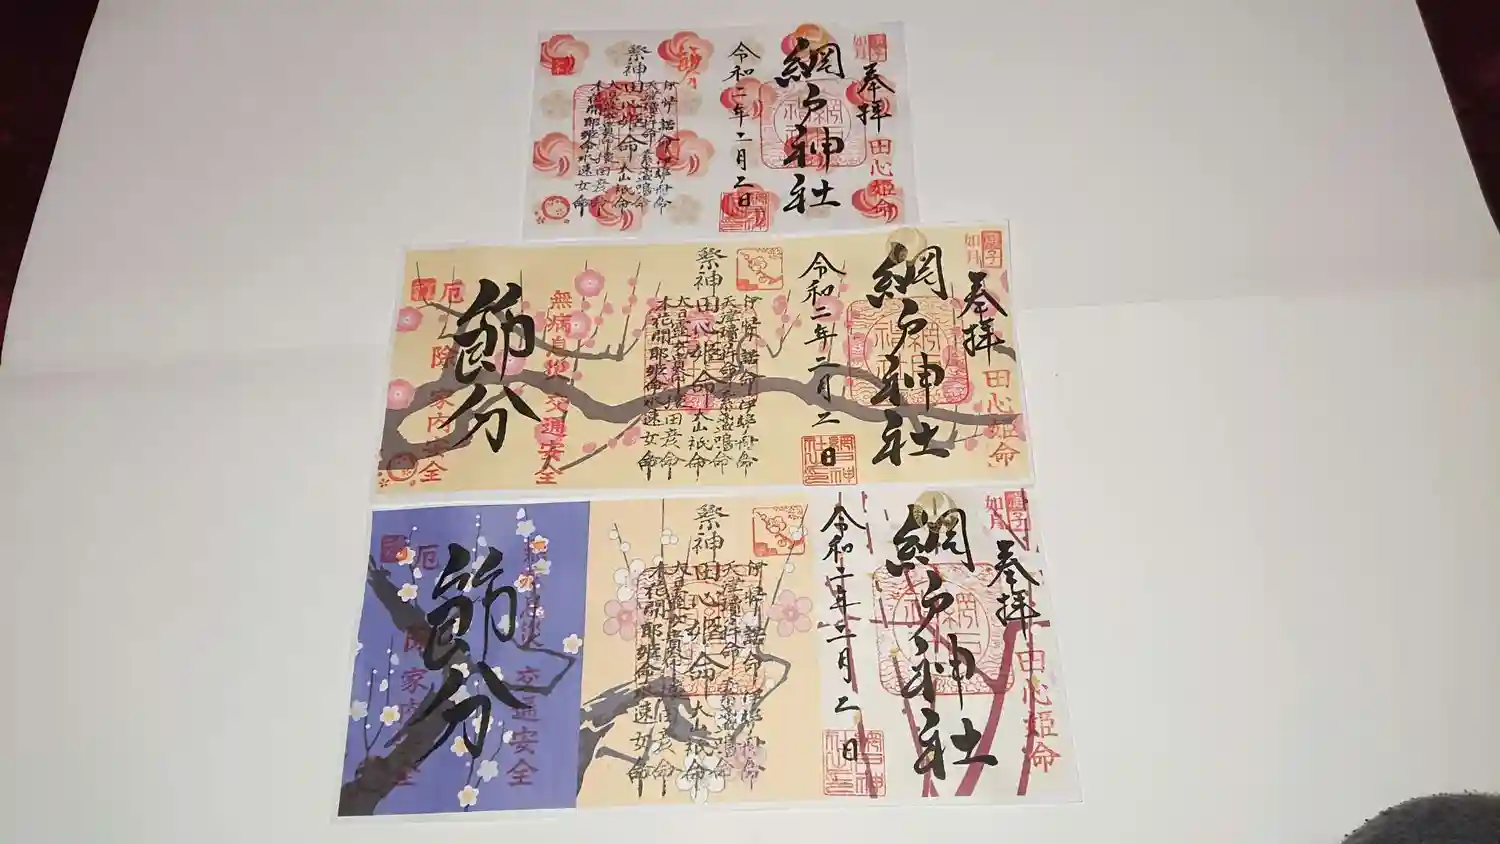 庚子
如月
奉拝
田心姫命
網戸神社
令和二年二月二日
節分
祭神
伊弉諾命 伊弉冉命
天津彦命 素盞嗚命
田心姫命 大山祇命
大日孁貴 猿田彦命
木花開耶姫命 水速女命
庚子
如月
奉拝
田心姫命
網戸神社
令和二年二月二日
網戸神社之印
祭神
伊弉諾命 伊弉冉命
田心姫命 大山祇命
木花開耶姫命 水速女命
無病息災 交通安全
節分
厄除 家内安全
庚子
如月
奉拝
田心姫命
網戸神社
令和二年二月二日
網戸神社之印
祭神
伊弉諾命 伊弉冉命
田心姫命 大山祇命
木花開耶姫命 水速女命
無病息災 交通安全
節分
厄除 家内安全